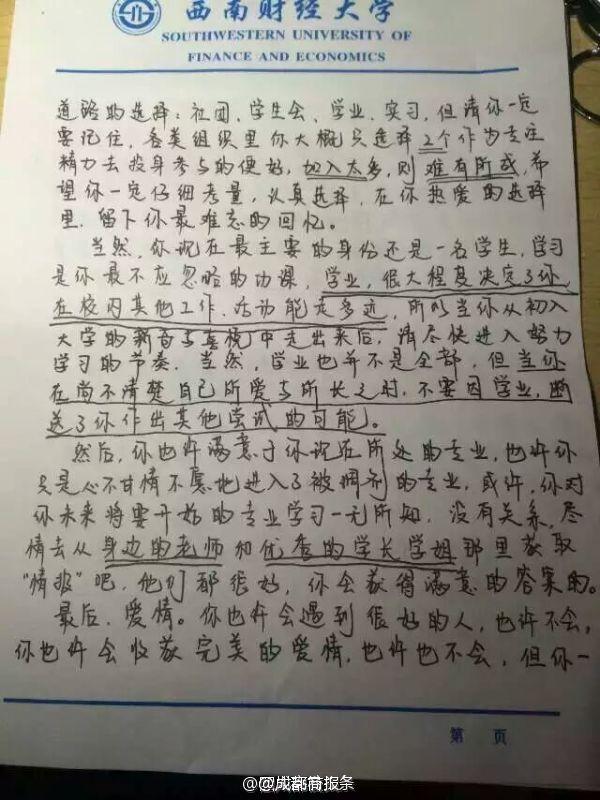 西南财经大学
SOUTHWESTERN UNIVERSITY OF
FINANCE AND ECONOMICS
道路的选择：社团、学生会、学业、实习，但请你一定
要记住，各类组织里你大概只选择2个作为专注
精力去投身参与的便好，加入太多，则难有所成，希
望你一定仔细考量，认真选择，在你热爱的选择
里，留下你最难忘的回忆。
当然，你现在最主要的身份还是一名学生，学习
是你最不应忽略的功课，学业，很大程度决定了你
在校内其他工作、活动能走多远，所以当你从初入
大学的新奇与喜悦中走出来后，请尽快进入努力
学习的节奏。当然，学业也并不是全部，但当你
在尚不清楚自己所爱与所长之时，不要因学业，断
送了你作出其他尝试的可能。
然后，你也许满意于你现在所处的专业，也许你
只是心不甘情不愿地进入了被调剂的专业，或许，你对
你未来将要开始的专业学习一无所知，没有关系，尽
情去从身边的老师和优秀的学长学姐那里获取
“情报”吧，他们都很好，你会获得满意的答案的。
最后，爱情。你也许会遇到很好的人，也许不会，
你也许会收获完美的爱情，也许也不会，但你一
第 页
@成都商报